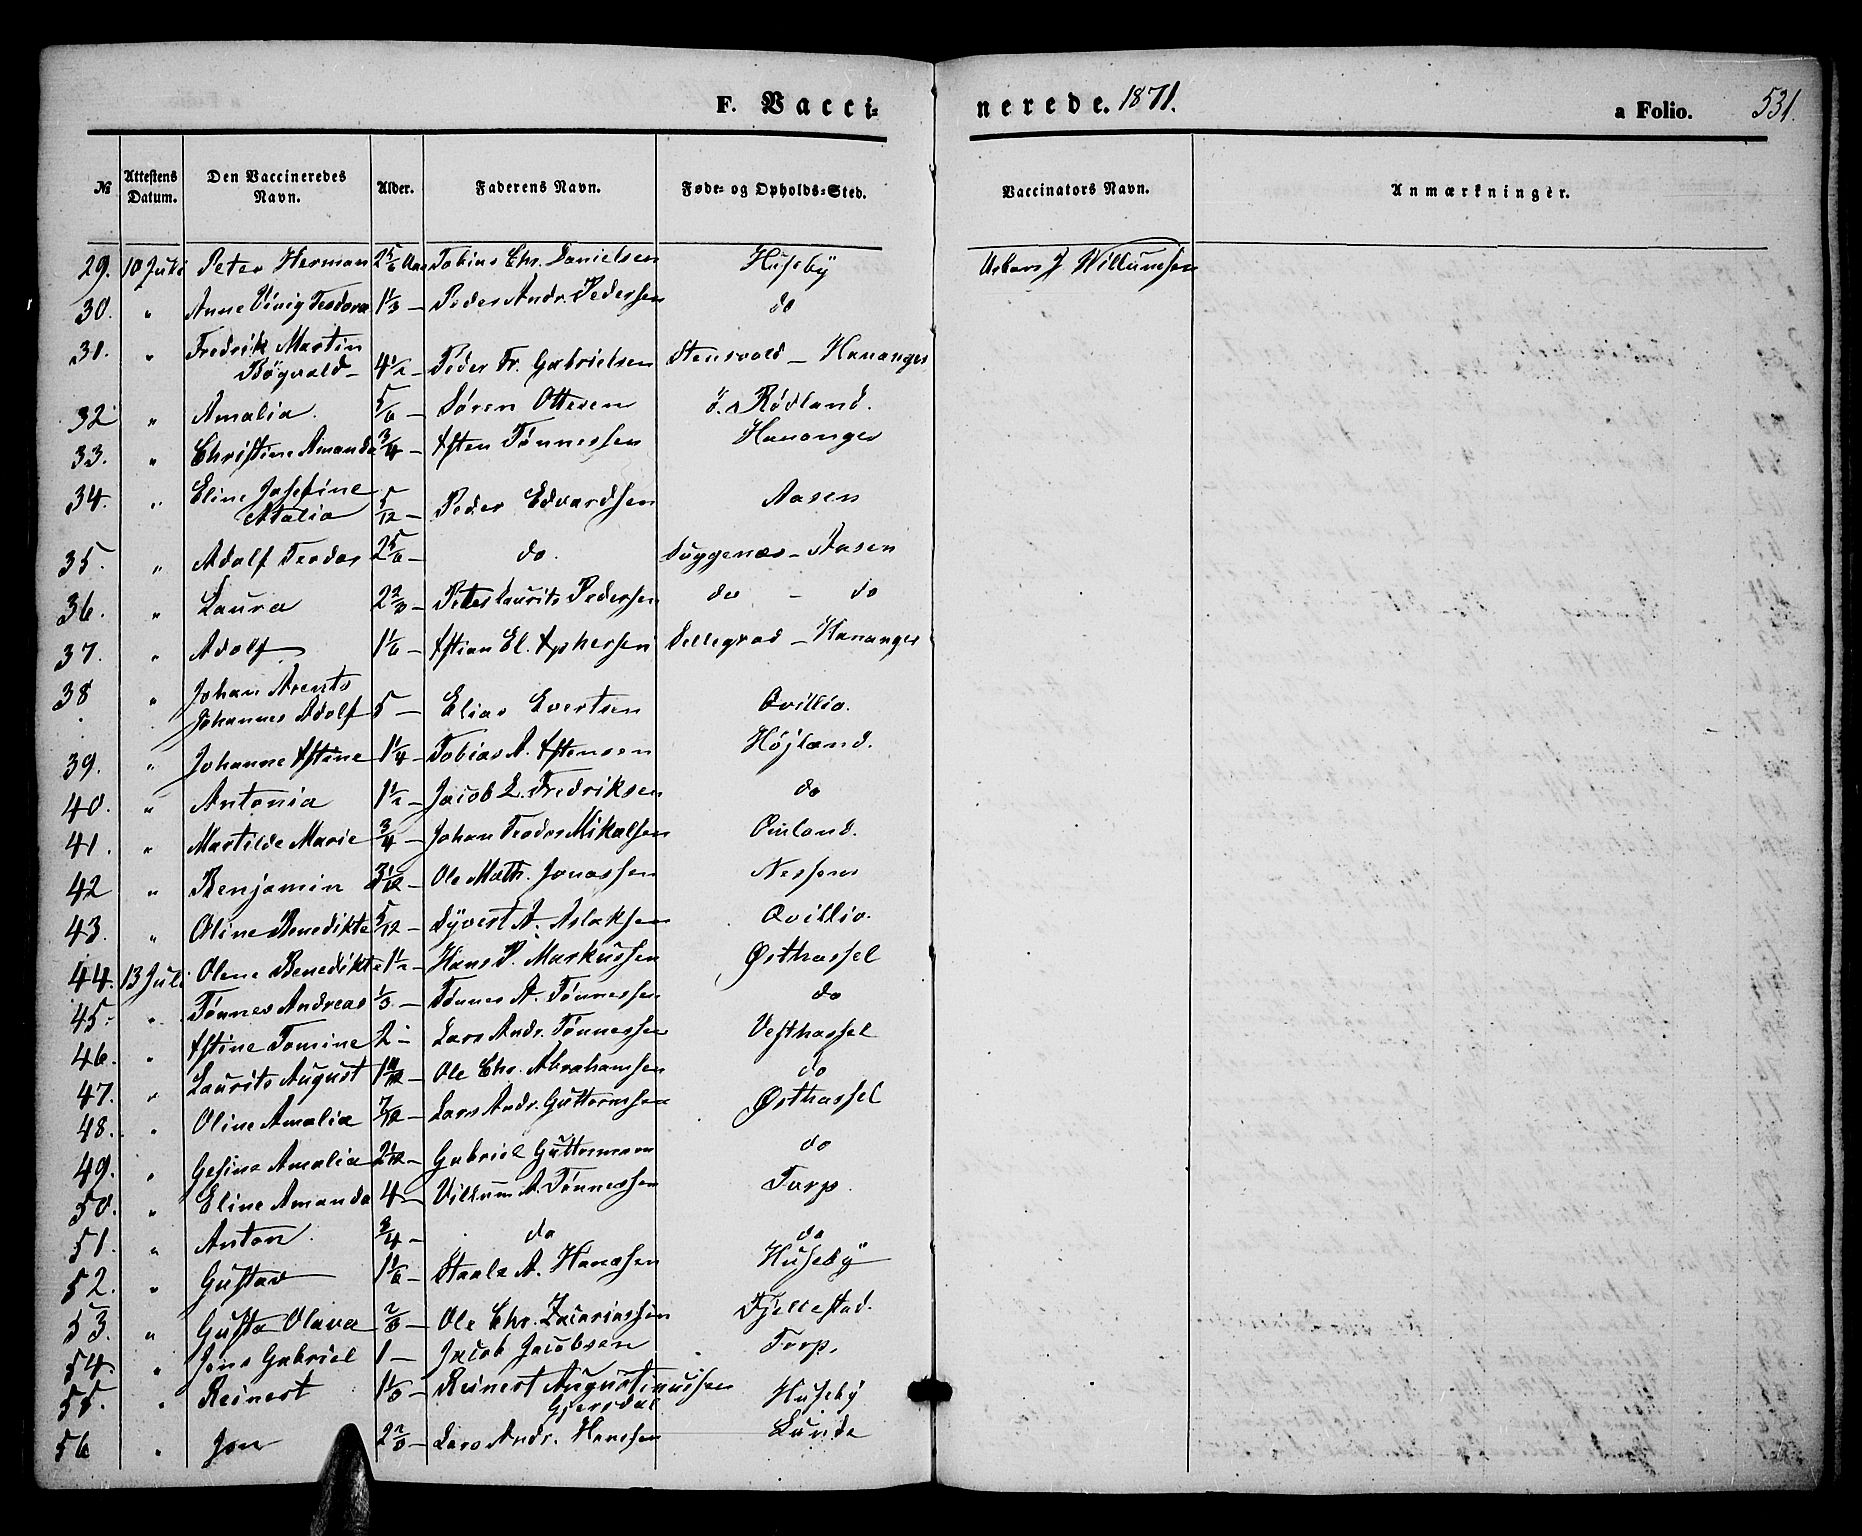 F. Vacci= nerede. 1871. a Folio. 531.
№ Attestens Datum. Den Vaccineredes Navn. Alder. Faderens Navn. Føde- og Opholds-Sted. Vaccinators Navn. Anmærkninger.
29. 10 Juli Peter Herman 2 5/6 Aar Tobias Chr. Danielsen Huseby J. Willumsen
30. " Anne Teodora 1 1/3 - Peder Andr. Pedersen do
31. " Fredrik Martin
Bøgvald - 4 1/2 - Peder Fr. Gabrielsen Stensvold - Hananger
32 " Amalia. 5/6 - Søren Ottesen Rødland.
33. " Christine Amanda 3/4 - Tønnessen Hananger
34. " Eline Josefine
Atalia 5/12 - Peder Edvardsen Aasen
35. " Adolf Teodor 2 5/6 - do. - Aasen
36. " Laura 2 2/3 - Peter Laurits Pedersen do - do
37. " Adolf 1 1/6 - El. - Hananger
38 " Johan Arents
Johannes Adolf 5 - Elias Evertsen Qvillio.
39. " Johanne 1 1/4 - Tobias A. Højland.
40. " Antonia 1 1/2 - Jacob L. Fredriksen do
41. " Martilde Marie 3/4 - Johan Teodor Mikalsen
42 " Benjamin Ole Math. Jonassen Nesheim
43. " Oline Benedikte 5/12 - Syvert A. Aslaksen Qvillio.
44. 13 Juli Olene Benedikte 1 1/2 - Hans P. Markussen Østhassel
45. " Tønnes Andreas 1/3 - Tønnes A. Tønnessen do
46. " Tomine 2 - Lars Andr. Tønnessen Vesthassel
47. " Laurits August Ole Chr. Abrahamsen do
48. " Oline Amalia 7/12 - Lars Andr. Guttormsen Østhassel
49. " Gesine Amalia 2 1/12 - Gabriel Guttormsen do
50. " Eline Amanda 4 - Villum A. Tønnessen Torp.
51. " Anton. 3/4 - do do
52. " Gustav 1 1/6 - Staale A. Hansen Huseby
53. " Gusta Olava 2/3 - Ole Chr. Zacariassen Fjellestad.
54. " Jens Gabriel 1 - Jacob Jacobsen Torp.
55. " Reinert 1 1/3 - Reinert Augustinussen
Gjersdal Huseby
56 " Jon 2 2/3 - Lars Andr. Hansen Lunde